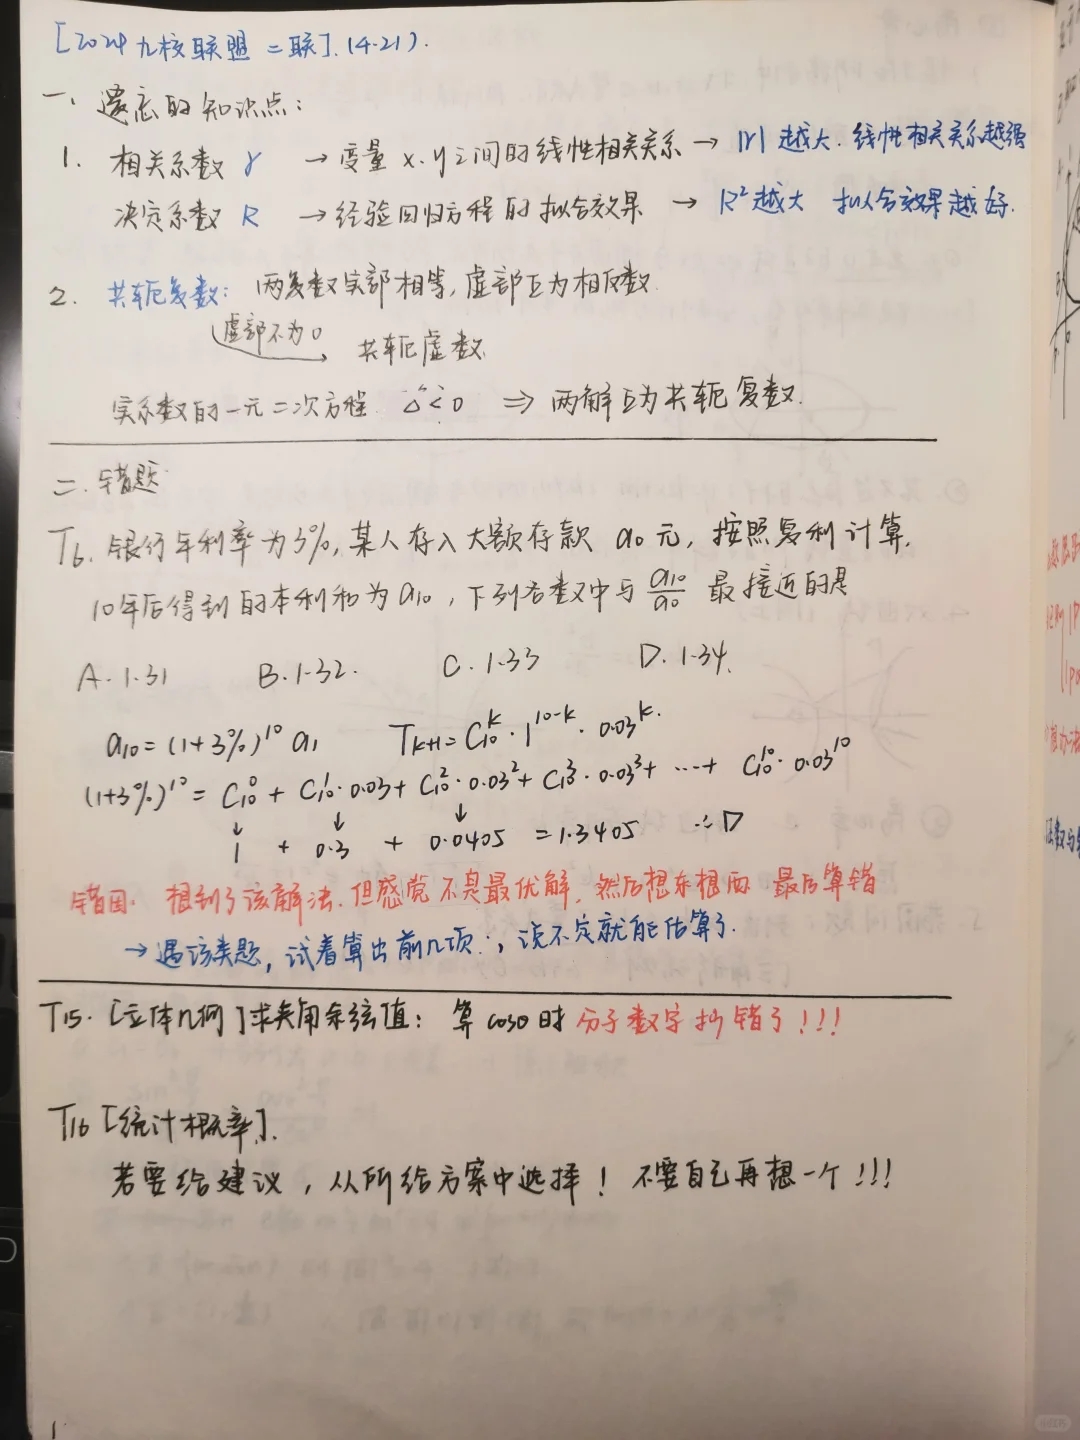 [2024九校联盟二联].(4.21).
一、遗忘的知识点：
1. 相关系数 r → 变量 x.y之间的线性相关关系 → |r| 越大.线性相关关系越强
决定系数 R → 经验回归方程的拟合效果 → R²越大 拟合效果越好.
2. 共轭复数: 两复数实部相等,虚部互为相反数.
虚部不为0 共轭虚数.
实系数的一元二次方程. △<0 ⇒ 两解互为共轭复数.
二.错题.
T6. 银行年利率为3%,某人存入大额存款 a0元,按照复利计算,
10年后得到的本利和为a10,下列各数中与 a10/a0 最接近的是
A.1.31 B.1.32. C.1.33 D.1.34.
a10=(1+3%)^10 a1 T_{k+1}=C_10^k·1^{10-k}·0.03^k.
(1+3%)^10 = C_10^0 + C_10^1·0.03+ C_10^2·0.03^2+ C_10^3·0.03^3+ …+ C_10^10·0.03^10
↓ ↓ ↓
1 + 0.3 + 0.0405 =1.3405 ∴D
错因. 想到了该解法.但感觉不是最优解,然后想东想西 最后算错
→遇该类题,试着算出前几项.,说不定就能估算了.
T15.[立体几何]求夹角余弦值: 算cosθ时 分子数字抄错了!!!
T16[统计概率].
若要给建议,从所给方案中选择! 不要自己再想一个!!!
1